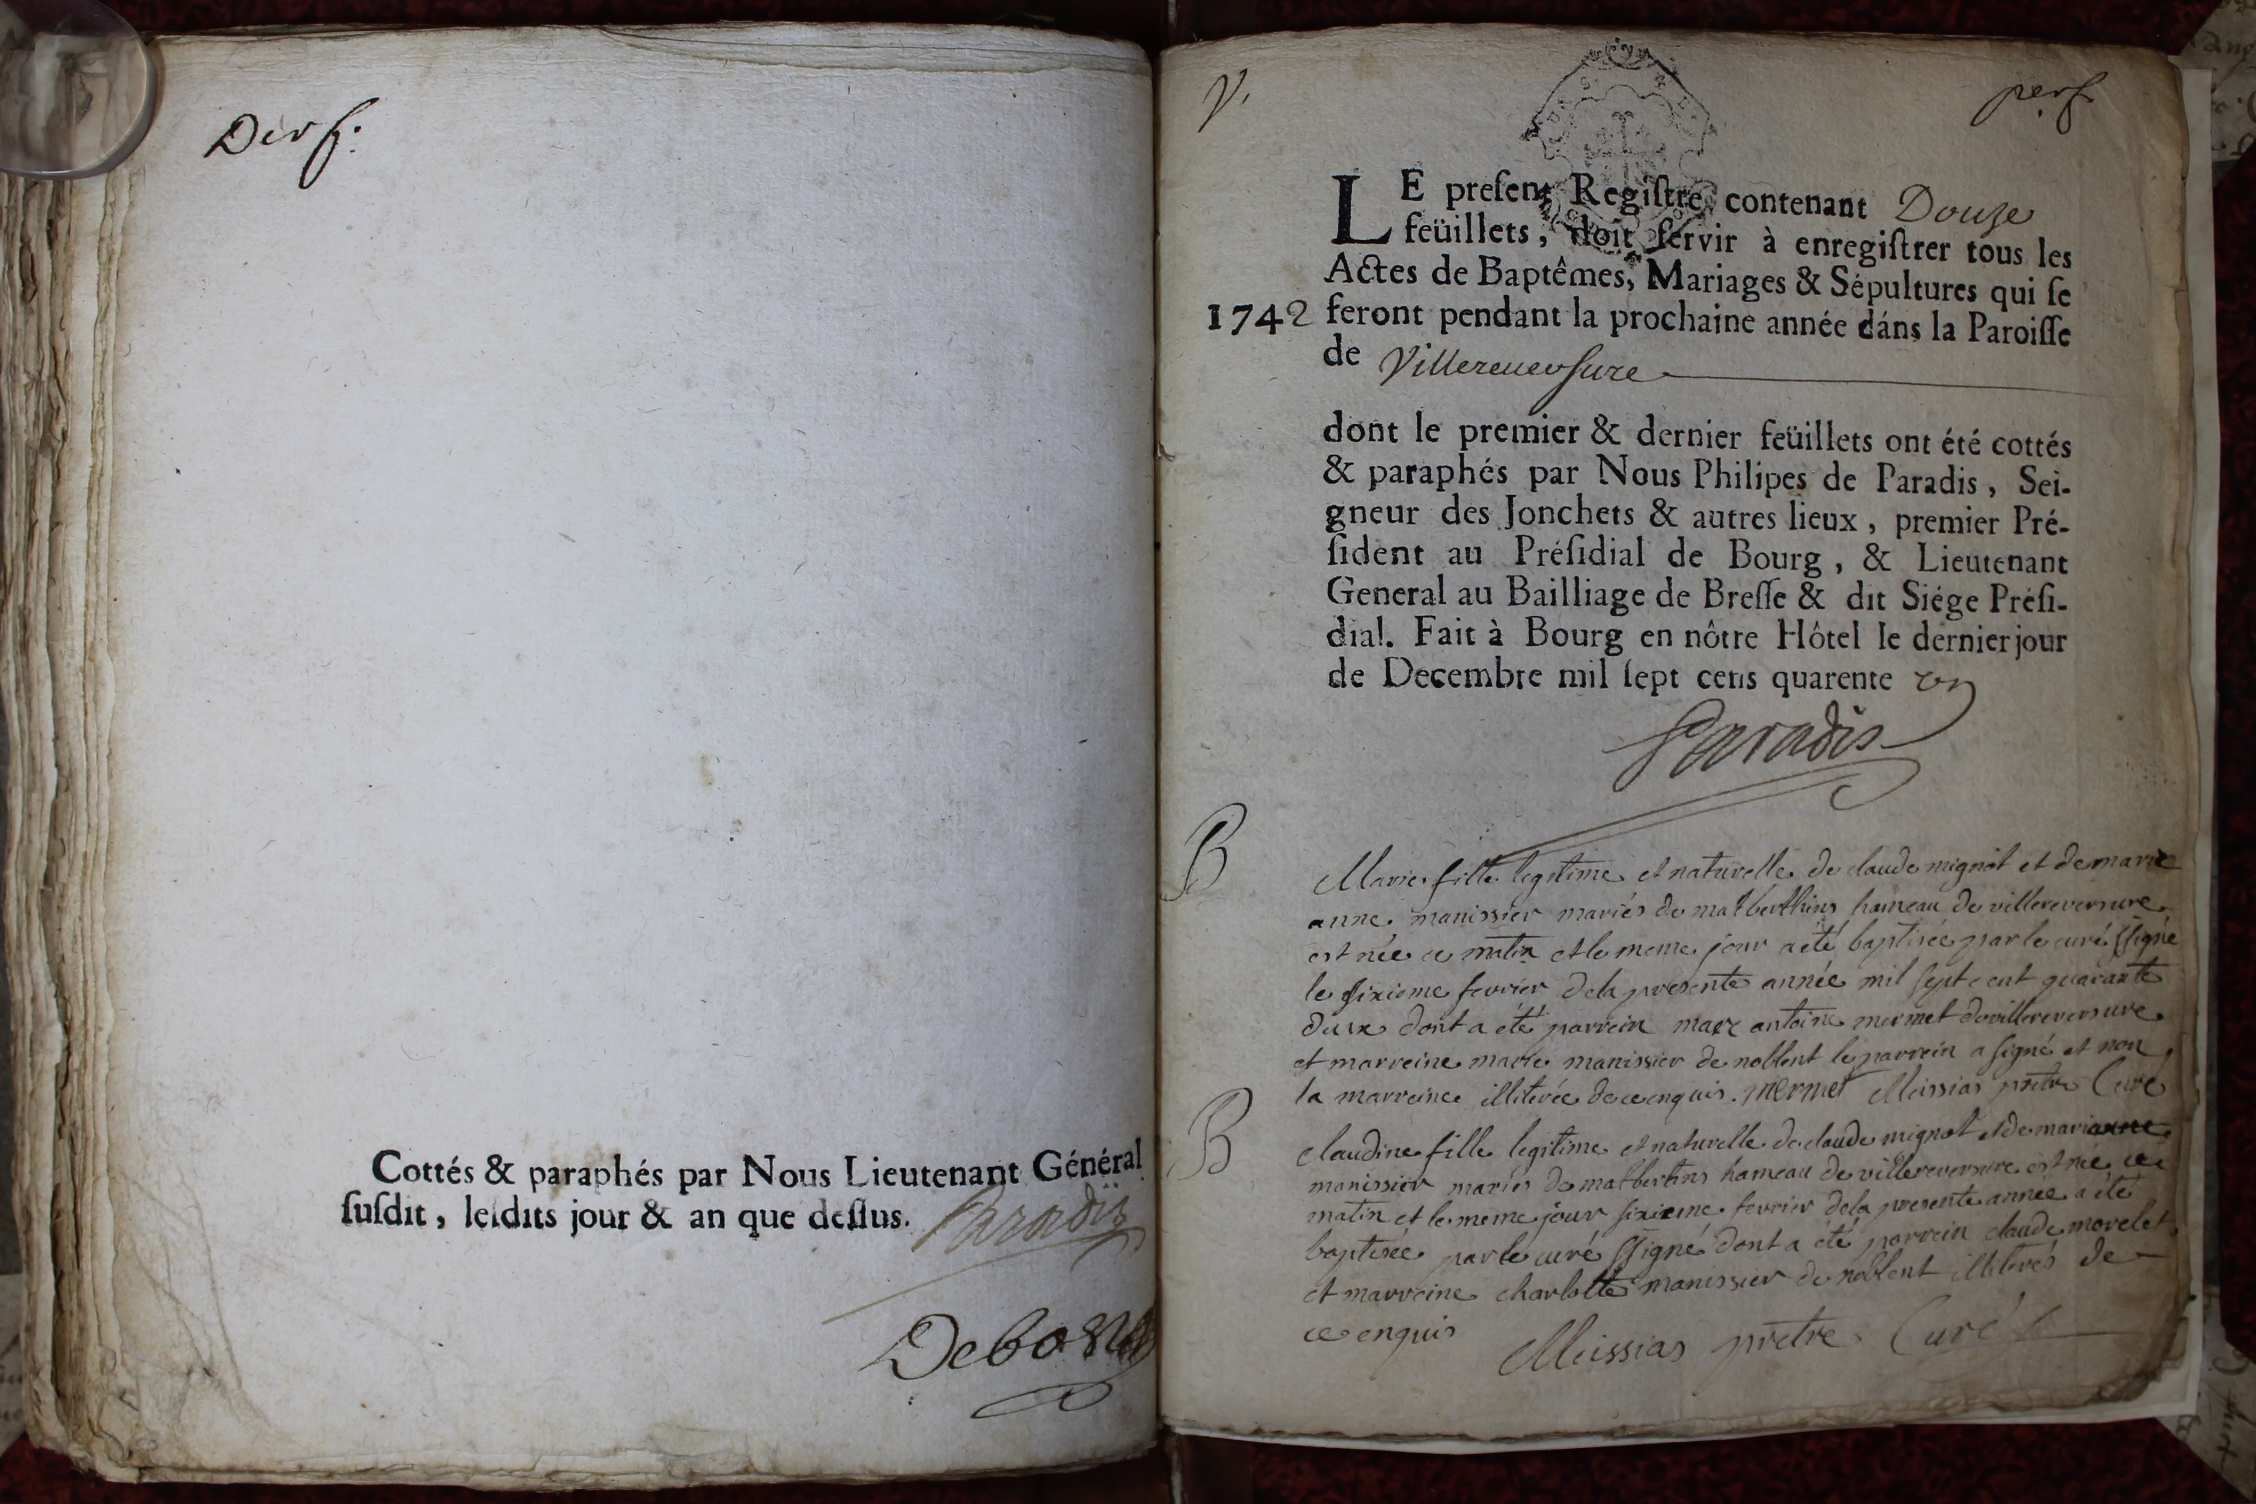 Derf.
Cottés & paraphés par Nous Lieutenant Général
susdit, lesdits jour & an que dessus. Paradis
Debost
V.
per f.
LE present Registre contenant Douze
feüillets, doit servir à enregistrer tous les
Actes de Baptêmes, Mariages & Sépultures qui se
1742 feront pendant la prochaine année dáns la Paroisse
de Villereuersure
dont le premier & dernier feüillets ont été cottés
& paraphés par Nous Philipes de Paradis, Sei-
gneur des Jonchets & autres lieux, premier Pré-
sident au Présidial de Bourg, & Lieutenant
General au Bailliage de Bresse & dit Siége Prési-
dial. Fait à Bourg en nôtre Hôtel le dernier jour
de Decembre mil sept cens quarente un
Paradis
B
Marie fille legitime et naturelle de claude mignot et de marie
anne manissier mariés de matberthins hameau de villereversure
est née ce matin et le meme jour a été baptisée par le curé ssigné
le sixieme fevrier de la presente année mil sept cent quarante
deux dont a été parrein marc antoine mermet de villereversure
et marreine marie manissier de noblent le parrein a signé et non
la marreine illiterée de ce enquis. mermet Meissias prêtre Curé
B
claudine fille legitime et naturelle de claude mignot et de marianne
manissier mariés de matbertins hameau de villereversure est née ce
matin et le meme jour sixieme fevrier de la presente année a été
baptisée par le curé ssigné dont a été parrein claude morelet
et marreine charlotte manissier de noblent illiterés de
ce enquis Meissias prêtre Curé